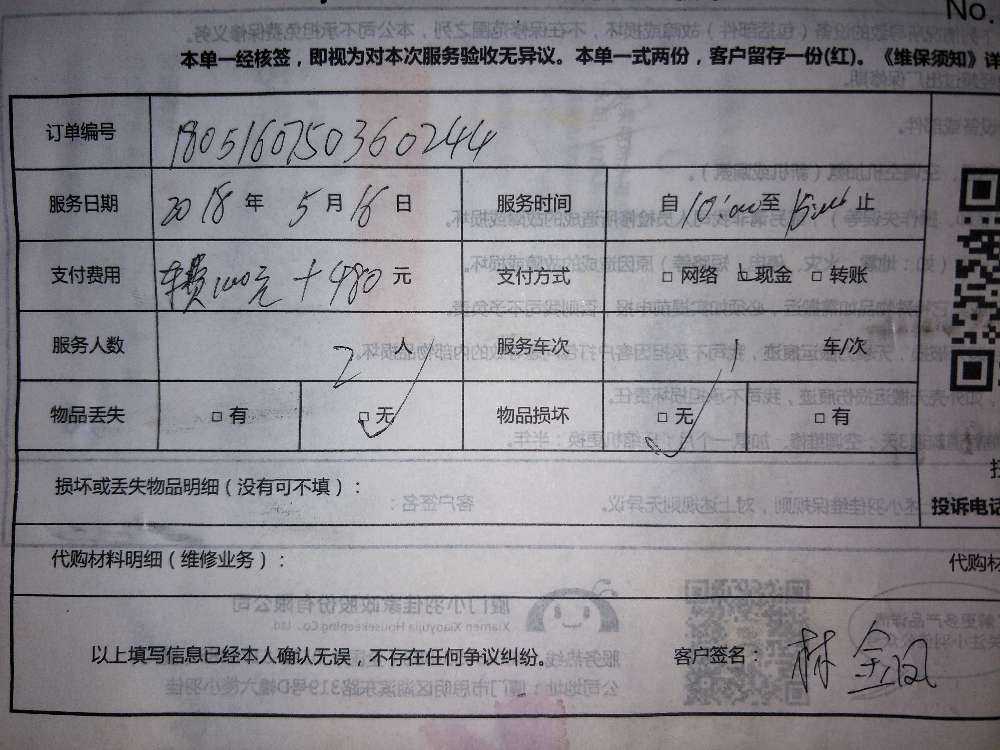 No.
本单一经核签，即视为对本次服务验收无异议。本单一式两份，客户留存一份(红)。《维保须知》详
订单编号 180516075036 0244
服务日期 2018 年 5 月 16 日 服务时间 自 10:00 至 15:00 止
支付费用 车费100元 + 480 元 支付方式 □ 网络 □ 现金 □ 转账
服务人数 2 人 服务车次 1 车/次
物品丢失 □ 有 □ 无 物品损坏 □ 无 □ 有
损坏或丢失物品明细（没有可不填）：
投诉电话
代购材料明细（维修业务）： 代购材
以上填写信息已经本人确认无误，不存在任何争议纠纷。 客户签名： 林金